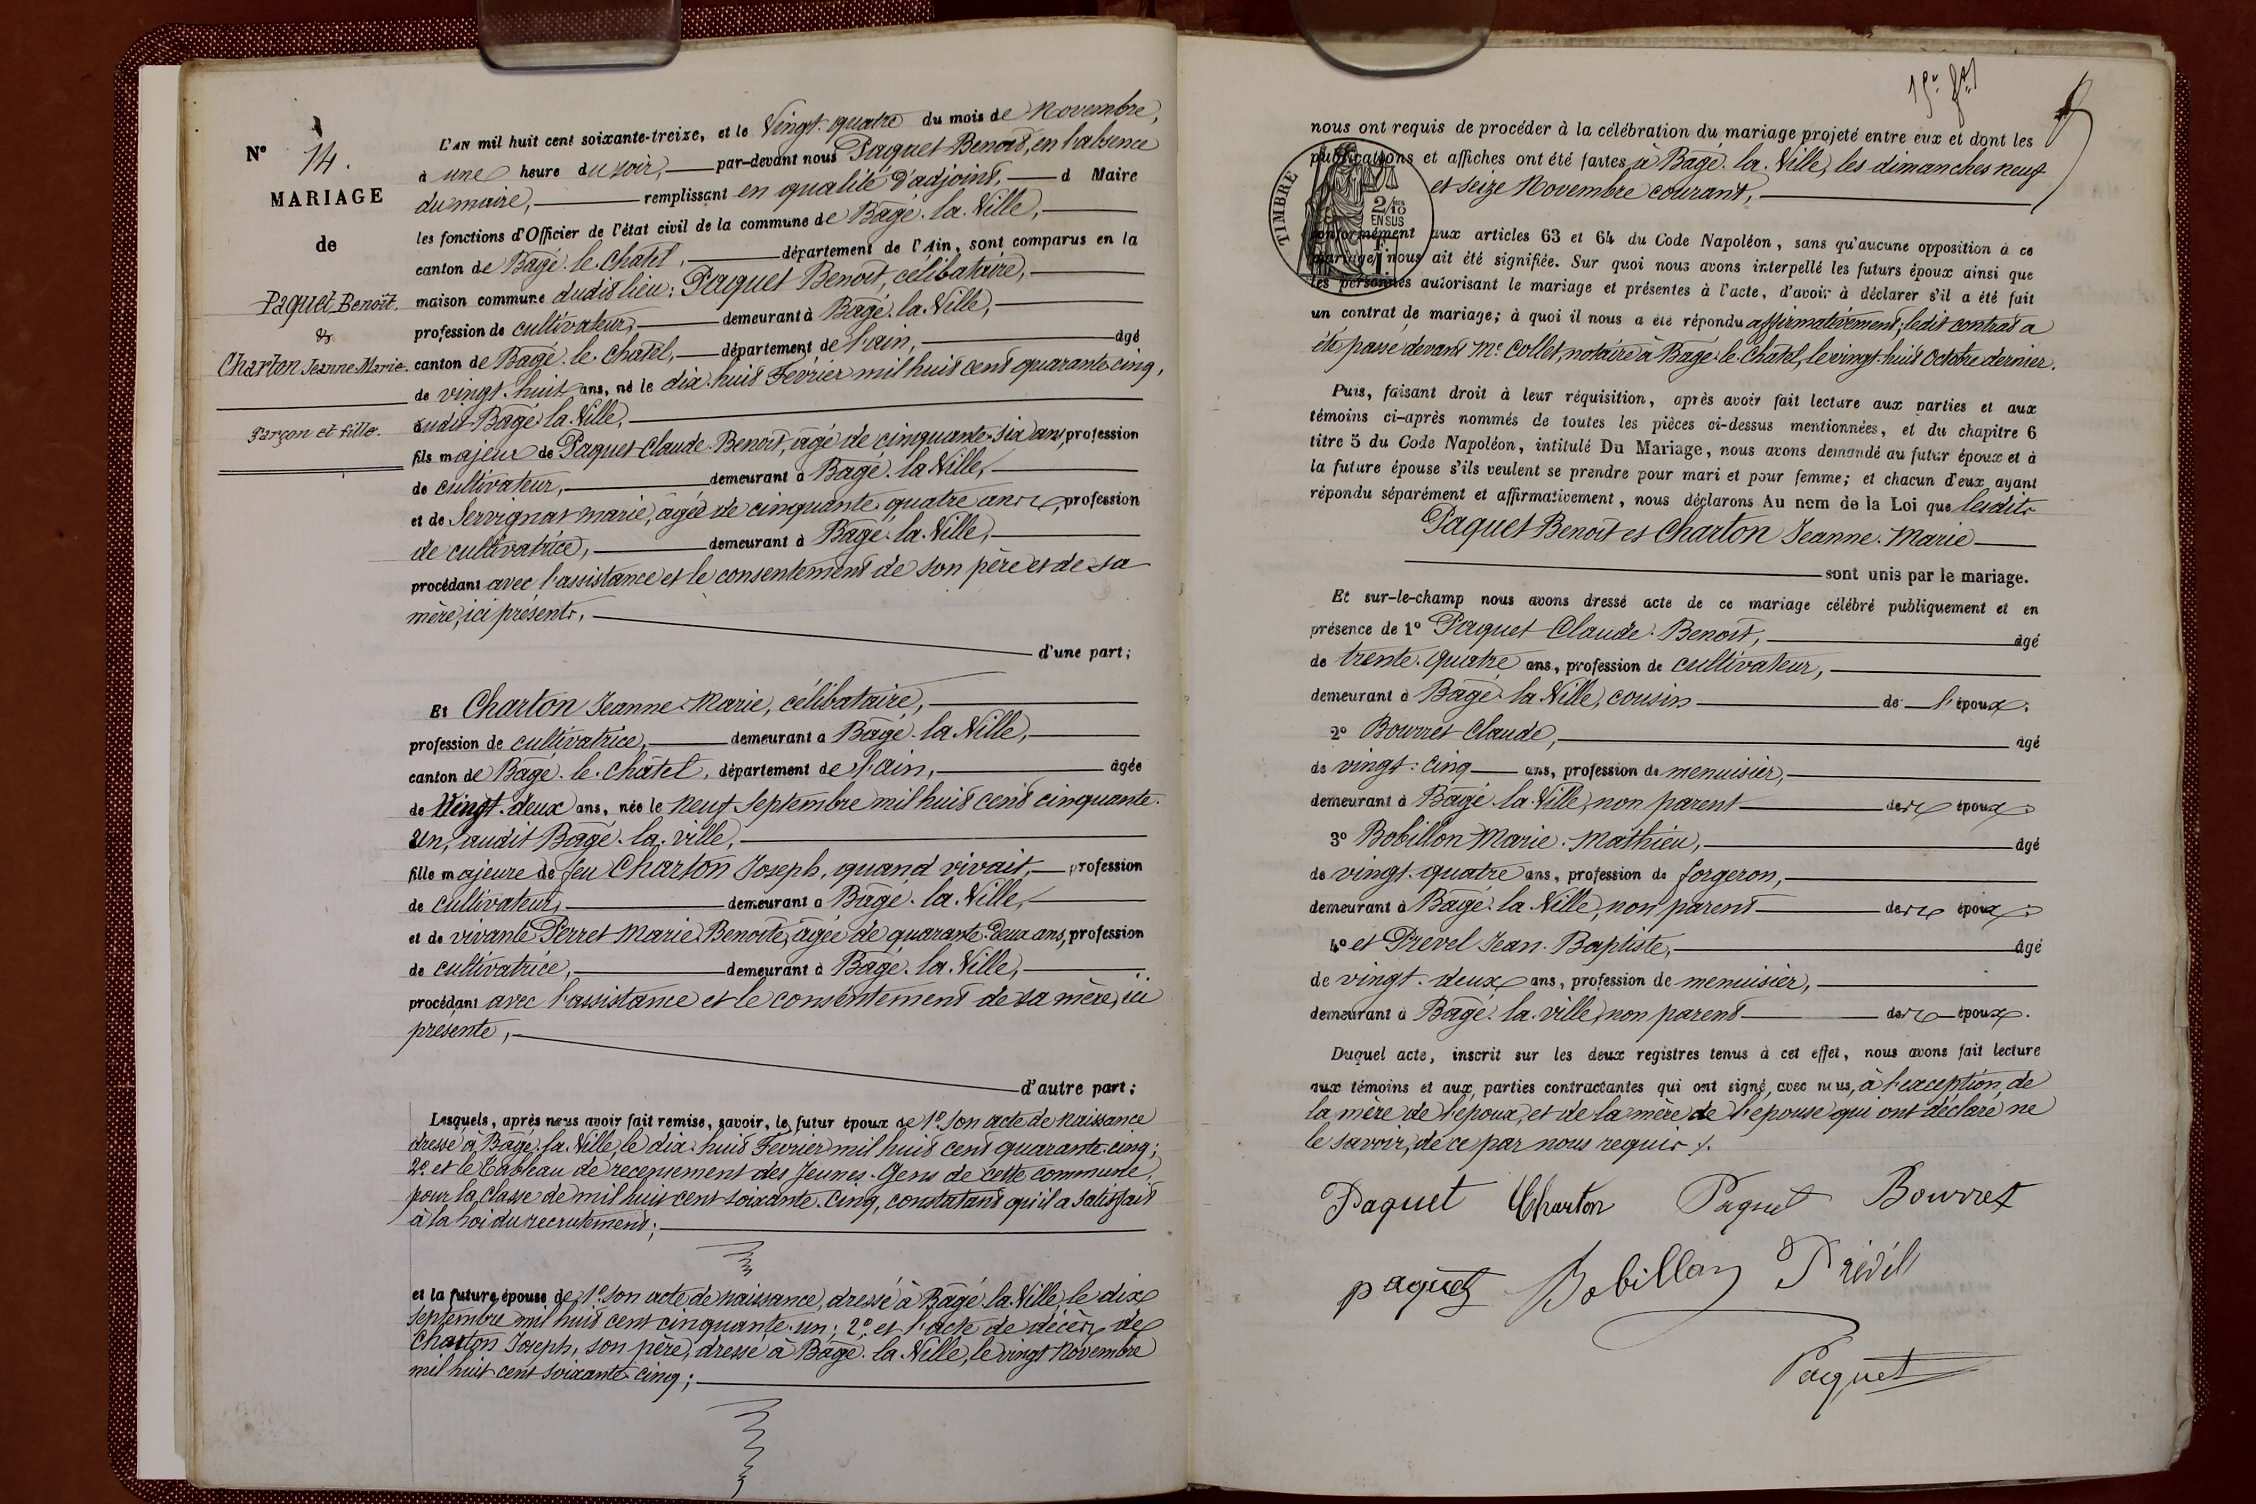 N° 14.
MARIAGE
de
Paquet Benoît.
&
Charton Jeanne Marie.
Garçon et fille.
L'AN mil huit cent soixante-treize, et le Vingt-quatre du mois de Novembre,
à une heure du soir, par-devant nous Paquet Benoît, en l'absence
du maire, remplissant en qualité d'adjoint, d Maire
les fonctions d'Officier de l'état civil de la commune de Bâgé-la-Ville,
canton de Bâgé-le-Châtel, département de l'Ain, sont comparus en la
maison commune dudit lieu: Paquet Benoît, célibataire,
profession de cultivateur, demeurant à Bâgé-la-Ville,
canton de Bâgé-le-Châtel, département de l'ain, âgé
de vingt-huit ans, né le dix-huit Février mil huit cent quarante-cinq,
audit Bâgé-la-Ville,
fils majeur de Paquet Claude-Benoît, âgé de cinquante-six ans, profession
de cultivateur, demeurant à Bâgé-la-Ville,
et de Servignat marie, âgée de cinquante-quatre ans, profession
de cultivatrice, demeurant à Bâgé-la-Ville,
procédant avec l'assistance et le consentement de son père et de sa
mère, ici présents,
d'une part;
Et Charton Jeanne-Marie, célibataire,
profession de cultivatrice, demeurant à Bâgé-la-Ville,
canton de Bâgé-le-Châtel, département de l'ain, âgée
de Vingt-deux ans, née le neuf Septembre mil huit cent cinquante-
un, audit Bâgé-la-ville,
fille majeure de feu Charton Joseph, quand vivait, profession
de cultivateur, demeurant à Bâgé-la-Ville,
et de vivante Perret Marie-Benoîte, âgée de quarante-deux ans, profession
de cultivatrice, demeurant à Bâgé-la-Ville,
procédant avec l'assistance et le consentement de sa mère, ici
présente,
d'autre part;
Lesquels, après nous avoir fait remise, savoir, le futur époux de 1° Son acte de Naissance
dressé à Bâgé-la-Ville, le dix-huit Février mil huit cent quarante-cinq;
2° et le Tableau de recensement des Jeunes-Gens de cette commune,
pour la classe de mil huit cent soixante-cinq, constatant qu'il a satisfait
à la Loi du recrutement;
et la future épouse de 1° Son acte de naissance, dressé à Bâgé-la-Ville, le dix
Septembre mil huit cent cinquante-un; 2° et l'acte de décès de
Charton Joseph, son père, dressé à Bâgé-la-Ville, le vingt Novembre
mil huit cent soixante-cinq;
nous ont requis de procéder à la célébration du mariage projeté entre eux et dont les
publications et affiches ont été faites à Bâgé-la-Ville, les dimanches neuf
et seize Novembre courant,
TIMBRE
2/10 EN SUS
conformément aux articles 63 et 64 du Code Napoléon, sans qu'aucune opposition à ce
mariage nous ait été signifiée. Sur quoi nous avons interpellé les futurs époux ainsi que
les personnes autorisant le mariage et présentes à l'acte, d'avoir à déclarer s'il a été fait
un contrat de mariage; à quoi il nous a été répondu affirmativement; ledit contrat a
été passé devant Me Collet, notaire à Bâgé-le-Châtel, le vingt-huit Octobre dernier.
Puis, faisant droit à leur réquisition, après avoir fait lecture aux parties et aux
témoins ci-après nommés de toutes les pièces ci-dessus mentionnées, et du chapitre 6
titre 5 du Code Napoléon, intitulé Du Mariage, nous avons demandé au futur époux et à
la future épouse s'ils veulent se prendre pour mari et pour femme; et chacun d'eux ayant
répondu séparément et affirmativement, nous déclarons Au nom de la Loi que lesdits
Paquet Benoît et Charton Jeanne-Marie
sont unis par le mariage.
Et sur-le-champ nous avons dressé acte de ce mariage célébré publiquement et en
présence de 1° Paquet Claude-Benoît, âgé
de trente-quatre ans, profession de cultivateur,
demeurant à Bâgé-la-Ville, cousin de l'époux.
2° Bourret Claude, âgé
de vingt-cinq ans, profession de menuisier,
demeurant à Bâgé-la-Ville, non parent des époux
3° Bobillon Marie-Mathieu, âgé
de vingt-quatre ans, profession de forgeron,
demeurant à Bâgé-la-Ville, non parent des époux
4° et Prevel Jean-Baptiste, âgé
de vingt-deux ans, profession de menuisier,
demeurant à Bâgé-la-ville, non parent des époux.
Duquel acte, inscrit sur les deux registres tenus à cet effet, nous avons fait lecture
aux témoins et aux parties contractantes qui ont signé, avec nous, à l'exception de
la mère de l'époux, et de la mère de l'épouse qui ont déclaré ne
le savoir, de ce par nous requis.
Paquet Charton Paquet Bourret
paquet Bobillon Prével
Paquet